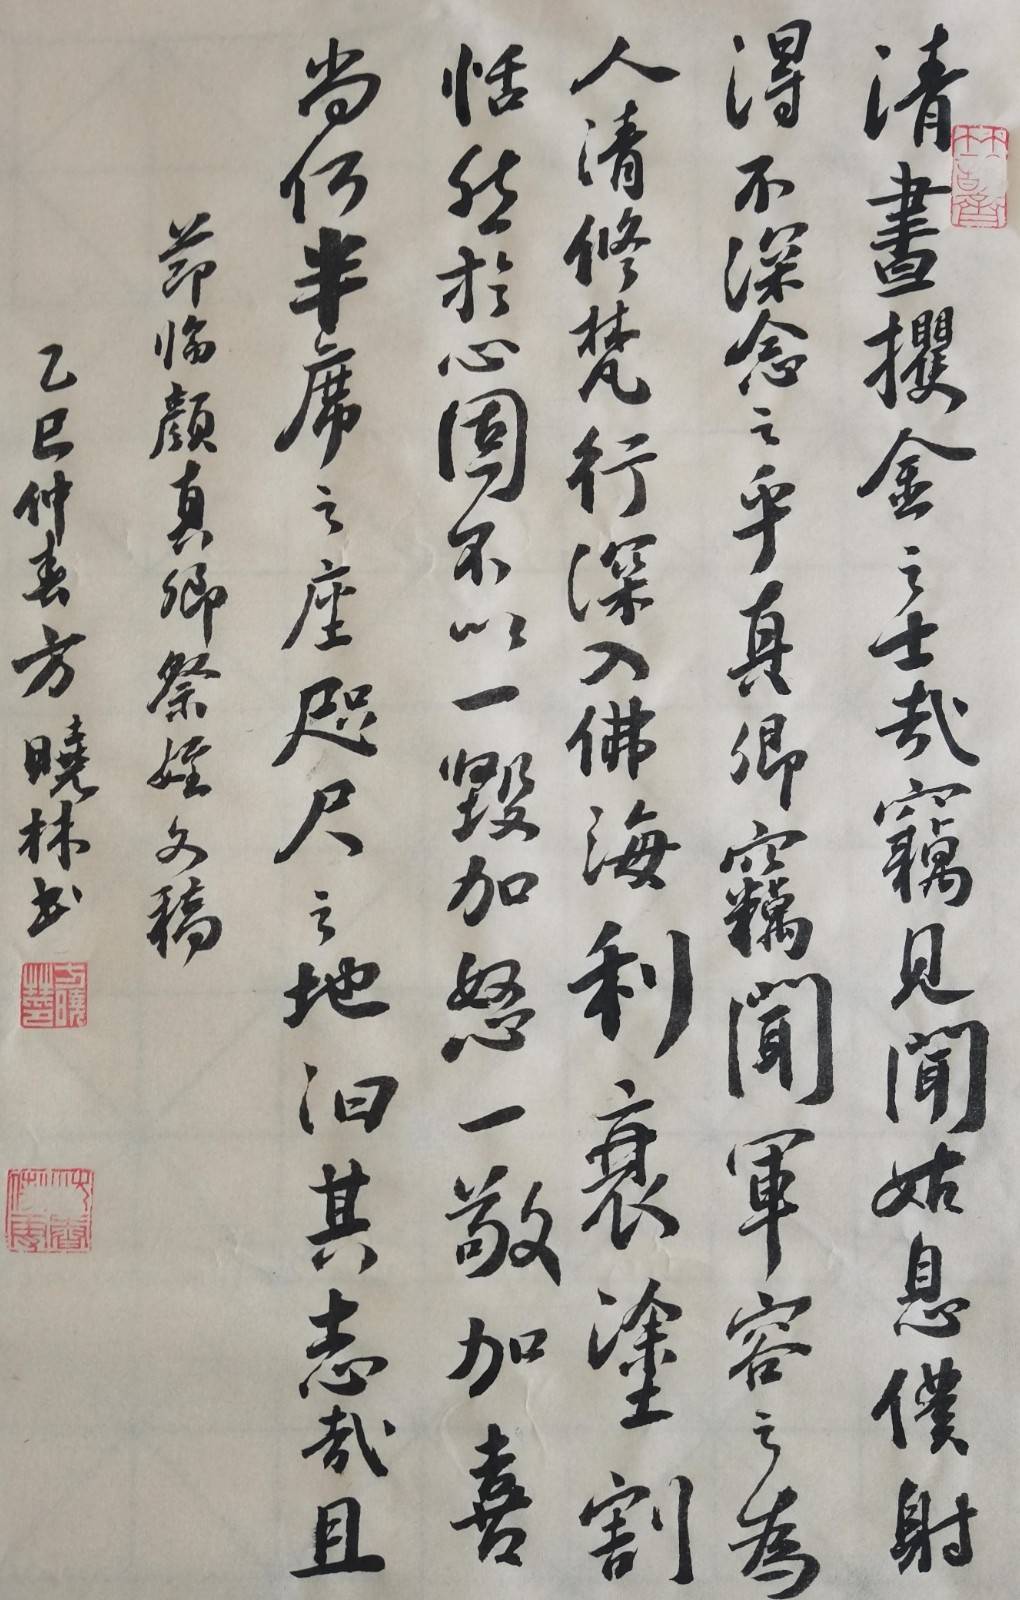 清晝攫金之士哉竊見聞姑息僕射
得不深念之乎真卿竊聞軍容之為
人清修梵行深入佛海利衰塗割
恬然於心固不以一毀加怒一敬加喜
尚何半席之座咫尺之地汩其志哉且
節臨顏真卿祭姪文稿
乙巳仲春方曉林書